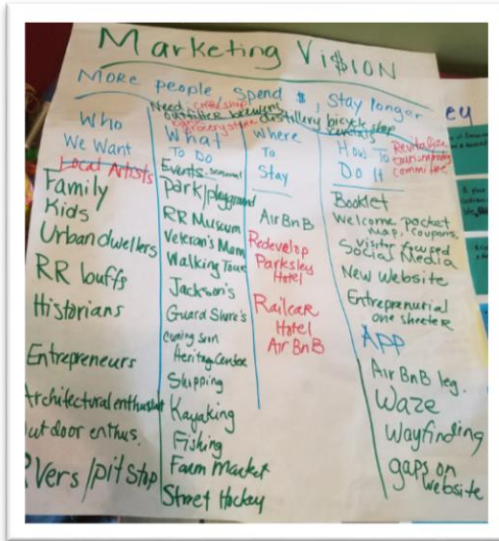 Marketing Vi$ION
MORE people Spend $, Stay longer
Need: craft shop
outfitter brewery distillery bicycle shop
grocery store rentals
Who
We Want
Local Artists
Family
Kids
Urban dwellers
RR buffs
Historians
Entrepreneurs
Architectural enthusiast
utdoor enthus.
Vers/pit stop
What
To Do
Events-seasonal
park/playground
RR Museum
Veteran's Mem
Walking Tour
Jackson's
Guard Shore's
Coming Soon
Heritage Center
Shipping
Kayaking
Fishing
Farm Market
Street Hockey
Where
To
Stay
AirBnB
Redevelop
Parksley
Hotel
Railcar
Hotel
Air BnB
How To
Do It
Revitalize
committee
Booklet
Welcome packet
map, coupons,
visitor focused
Social Media
New Website
Entreprenurial
one sheeter
APP
Air BnB leg.
Waze
Wayfinding
gaps on
website
ey